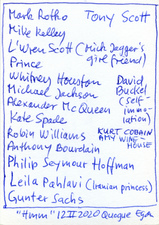 Mark Rothko Tony Scott
Mike Kelley
L'Wren Scott (Mick Jagger's girlfriend)
Prince
Whitney Houston David Buckel (Self-immolation)
Michael Jackson
Alexander McQueen
Kate Spade
Robin Williams KURT COBAIN
Anthony Bourdain AMY WINEHOUSE
Philip Seymour Hoffman
Leila Pahlavi (Iranian princess)
Gunter Sachs
"Hmm" 12 II 2020 Quogue